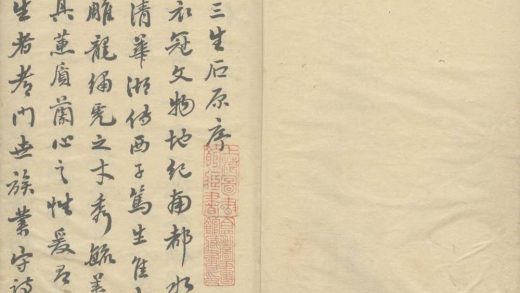 三生石原序
衣冠文物地紀南都水
清華湖傳西子篤生隹
雕龍繡虎之才秀毓義
具蕙質蘭心之性爰君
生者考門世族業守詩